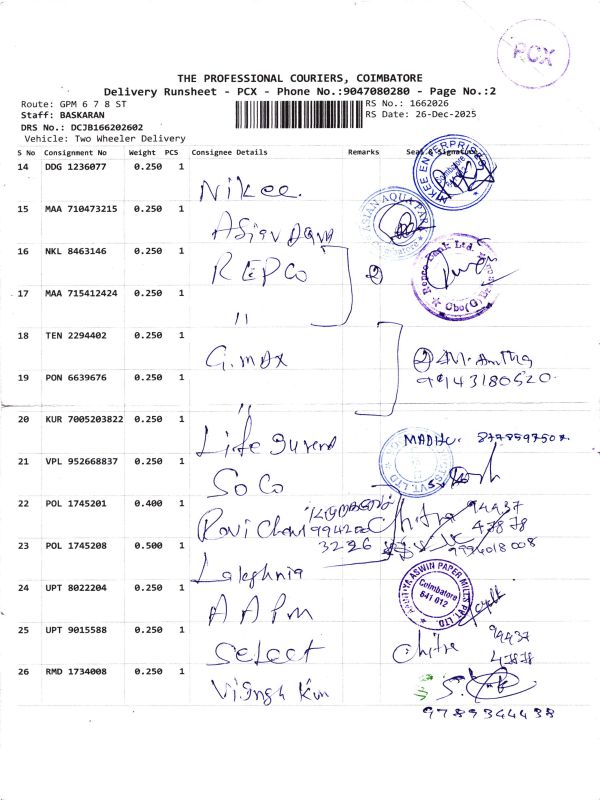 PCX
THE PROFESSIONAL COURIERS, COIMBATORE
Delivery Runsheet - PCX - Phone No.:9047080280 - Page No.:2
Route: GPM 6 7 8 ST
RS No.: 1662026
Staff: BASKARAN
RS Date: 26-Dec-2025
DRS No.: DCJB166202602
Vehicle: Two Wheeler Delivery
S No Consignment No Weight PCS Consignee Details Remarks Seal & Signature
14 DDG 1236077 0.250 1 Nikee
15 MAA 710473215 0.250 1 Asian
ASIAN AQUA
16 NKL 8463146 0.250 1 REPCO 2
Repco Bank Ltd.
17 MAA 715412424 0.250 1 "
18 TEN 2294402 0.250 1 G.max 2
19 PON 6639676 0.250 1 "
99143180520
20 KUR 7005203822 0.250 1 Life
MADHU. 877859750
21 VPL 952668837 0.250 1 SoCo
22 POL 1745201 0.400 1 Ravi
99420 Chitra 94437
3226 47878
23 POL 1745208 0.500 1
9994018008
24 UPT 8022204 0.250 1 AAPM
AADITIYA ASWIN PAPER MILLS PVT. LTD
Coimbatore
641 012
25 UPT 9015588 0.250 1 Select Chitra 94437
47878
26 RMD 1734008 0.250 1
9789344438